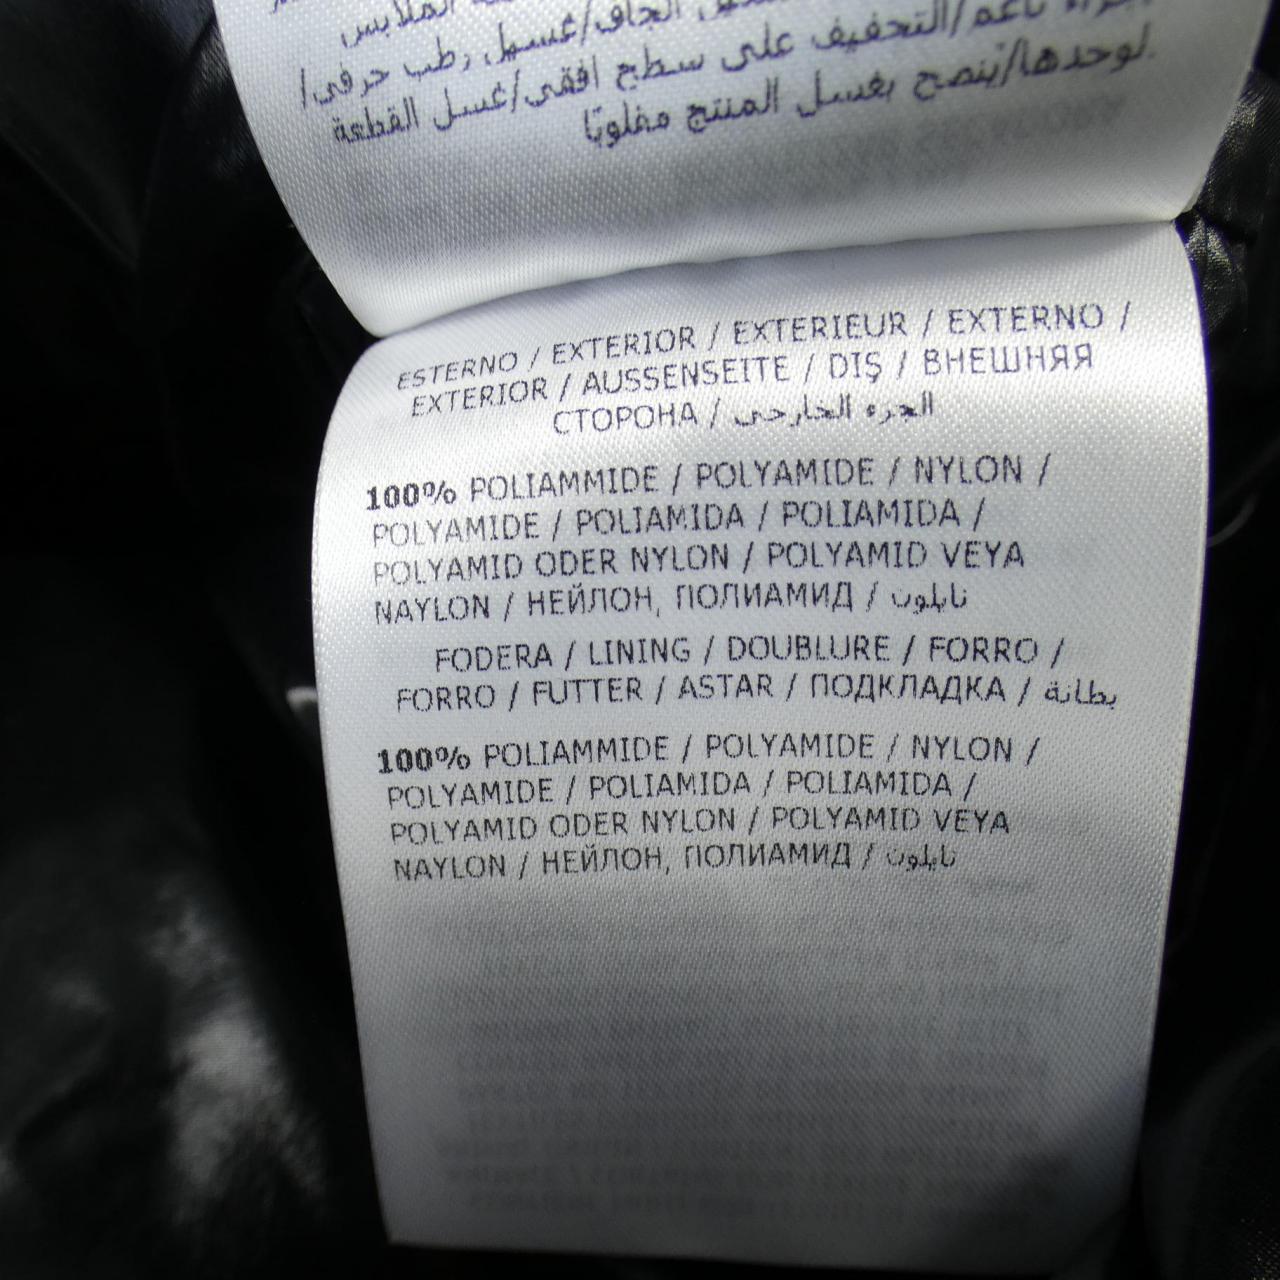 الملابس
الجاف/غسيل رطب حرفي/
ناعم/التجفيف على سطح افقي/غسل القطعة
لوحدها/ينصح بغسل المنتج مقلوبًا.
ESTERNO / EXTERIOR / EXTERIEUR / EXTERNO /
EXTERIOR / AUSSENSEITE / DIŞ / ВНЕШНЯЯ
СТОРОНА / الجزء الخارجي
100% POLIAMMIDE / POLYAMIDE / NYLON /
POLYAMIDE / POLIAMIDA / POLIAMIDA /
POLYAMID ODER NYLON / POLYAMID VEYA
NAYLON / НЕЙЛОН, ПОЛИАМИД / نايلون
FODERA / LINING / DOUBLURE / FORRO /
FORRO / FUTTER / ASTAR / ПОДКЛАДКА / بطانة
100% POLIAMMIDE / POLYAMIDE / NYLON /
POLYAMIDE / POLIAMIDA / POLIAMIDA /
POLYAMID ODER NYLON / POLYAMID VEYA
NAYLON / НЕЙЛОН, ПОЛИАМИД / نايلون